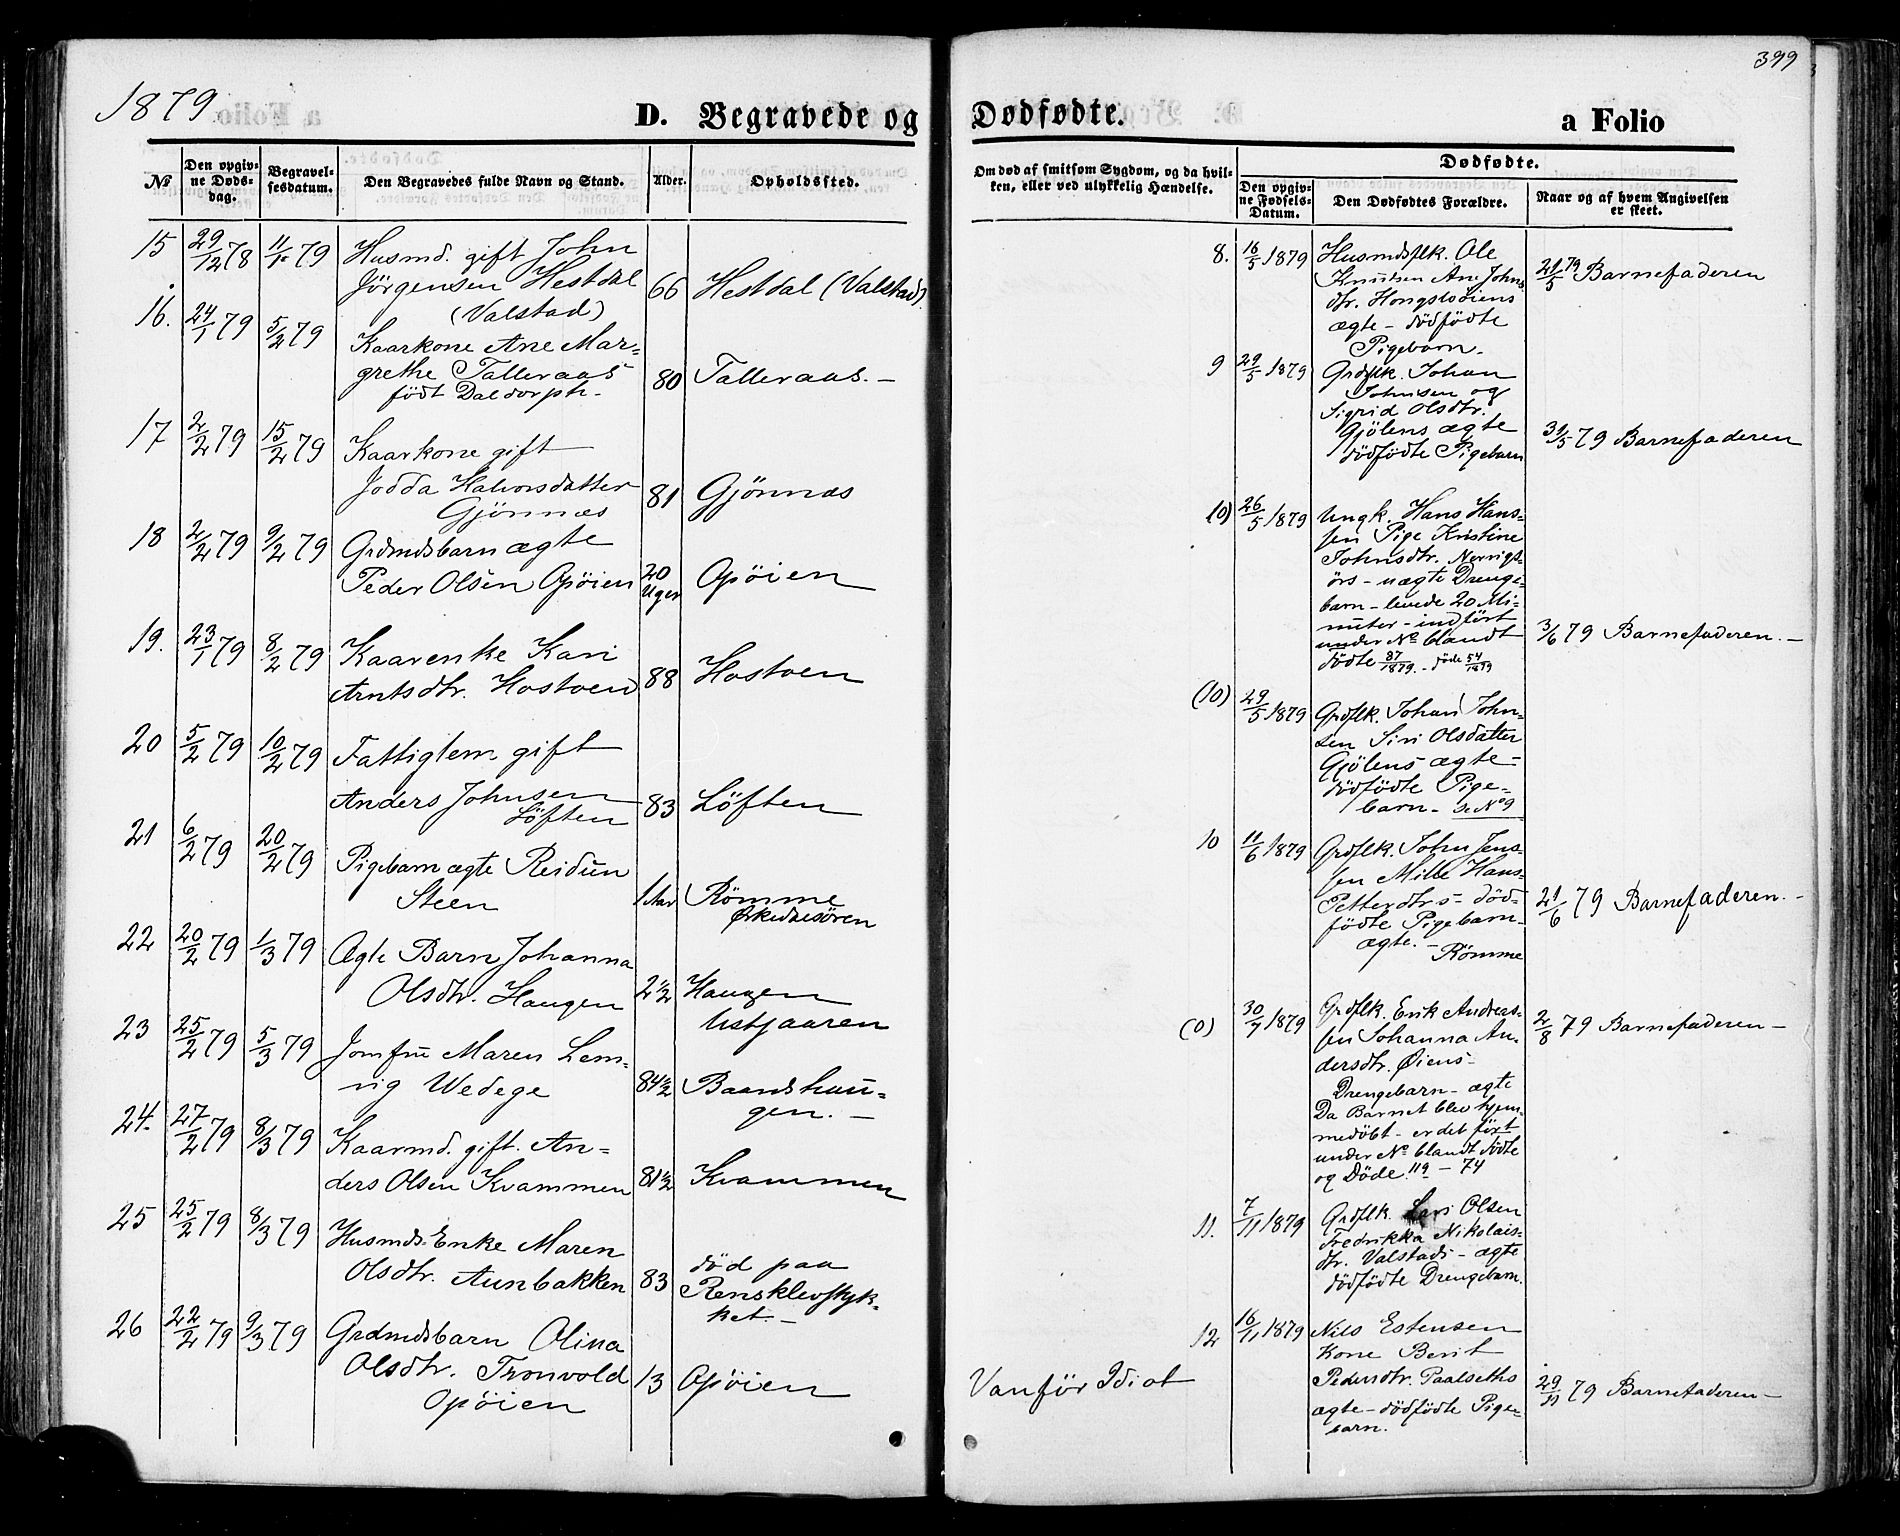 1879
D. Begravede og
№
Den opgiv-
ne Døds-
dag.
Begravel-
sesdatum.
Den Begravedes fulde Navn og Stand.
Alder.
Opholdssted.
15 29/12 78 11/1 79 Husmd. gift John
Jørgensen Hestdal 66 Hestdal (Valstad)
(Valstad)
16. 24/1 79 5/2 79 Kaarkone Ane Mar-
grethe Talleraas 80 Talleraas.-
født Daldorph-
17 2/2 79 15/2 79 Kaarkone gift
Jodda Halvorsdatter 81 Gjönnæs
Gjönnæs
18 2/2 79 9/2 79 Grdmdsbarn ægte
Peder Olsen Opöien 20 Uger Opöien
19. 23/1 79 8/2 79 Kaarenke Kari
Arntsdtr. Hostoen 88 Hostoen
20 5/2 79 10/2 79 Fattiglem gift
Anders Johnsen 83 Löften
Löften
21 6/2 79 20/2 79 Pigebarn ægte Reidun
Steen 1 Aar Römme
Ørkedalsören
22 20/2 79 1/3 79 Ægte Barn Johanna
Olsdtr. Haugen 2 1/2 Haugen
Ustjaaren
23 25/2 79 5/3 79 Jomfru Maren Lem-
vig Wedege 84 1/2 Baardshau-
gen.-
24. 27/2 79 8/3 79 Kaarmd. gift. An-
ders Olsen Kvammen 81 1/2 Kvammen
25 25/2 79 8/3 79 Husmds-Enke Maren
Olsdtr. Aunbakken 83 död paa
Rensklevstyk-
ket.-
26 22/2 79 9/3 79 Grdmdsbarn Olina
Olsdtr. Tronvold 13 Opöien
Opöien
399
Dødfødte.
a Folio
Om død af smitsom Sygdom, og da hvil-
ken, eller ved ulykkelig Hændelse.
Dødfødte.
Den opgiv-
ne Fødsels-
Datum.
Den Dødfødtes Forældre.
Naar og af hvem Angivelsen
er skeet.
8. 16/5 1879 Husmdsflk. Ole
Knutsen Ane Johns
dtr. Hongslöiens
ægte - dödfödte
Pigebarn-
21/5 79 Barnefaderen
9 29/5 1879 Grdflk. Johan
Johnsen og
Sigrid Olsdtr.
Gjölens ægte
dödfödte Pigebarn
31/5 79 Barnefaderen
10) 26/5 1879 Ungk. Hans Hans-
sen Pige Kristine
Johnsdtr. Nervigs-
örs - uægte Drenge-
barn - levede 20 Mi-
nuter - indfört
under № blandt
födte 87/1879 - döde 54/1879
3/6 79 Barnefaderen.-
(10) 29/5 1879 Grdflk. Johan John-
sen Siri Olsdatter
Gjölens ægte-
dödfödte Pige-
barn - Se № 9
10 11/6 1879 Grdflk. John Jens-
sen Mille Hans
Petterdtrs - död-
födte Pigebarn-
ægte.-
Römme
21/6 79 Barnefaderen.-
(0) 30/7 1879 Grdflk. Erik Anders-
sen Johanna An-
dersdtr. Øiens-
Drengebarn - ægte
Da Barnet blev hjem-
medöbt - er det fört
under № blandt födte
og Döde. 119 - 74
2/8 79 Barnefaderen-
11. 7/11 1879 Grdflk. Olsen
Fredrikka Nikolais-
dtr. Valstads - ægte
dödfödte Drengebarn.
12 16/11 1879 Nils Estensen
Kone Berit
Pedersdtr. Paalseths
ægte - dödfödte Pige-
barn.
29/11 79 Barnefaderen-
Vanför Idiot